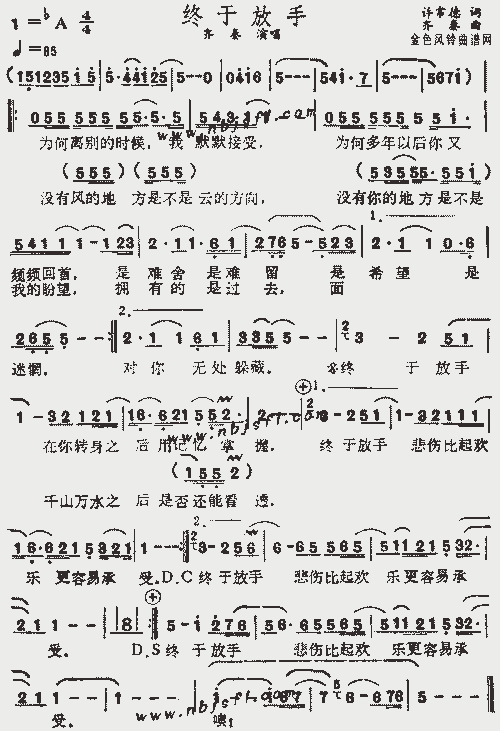 终于放手
许常德 词
齐秦 演唱
齐秦 曲
1=♭A 4/4
金色风铃曲谱网
♩=65
(151235 i 5 | 5·44i25 | 5--0 | 04i6 | 5--- | 54i·7 | 5--- | 567i)
055 555 555·5·5 | 555·
055 555 5 5 i·
为何离别的时候，我 默默接受， 为何多年以后你又
(555)(555) (53555·55i)
没有风的地 方是不是 云的方向， 没有你的地方是不是
1.
5411 1-123 | 2·11·61 | 276 5-523 | 2·1 1 0·6
频频回首， 是 难舍 是难 留 是 希望 是
我的盼望， 拥 有的 是过 去， 面
2.
2655 -- :| 2·1 1 61 | 3355 -- | 3 - 2 51
迷惘。 对你 无处躲藏。 𝄋终 于 放手
1.
1-32121 | 16·621552· | 2--- | 3-251 | 1-32111
www.nbjsfl.com
在你转身之 后 用记忆 掌 握。 终 于放手 悲伤比起欢
(155 2)
千山万水之 后 是否还能看 透，
2.
16·6215321 | 1--- :| 3-256 | 6-65565 | 51121532·
乐 更容易承 受。D.C 终于放手 悲伤比起欢 乐更容易承
211-- | 8 :| 5-i276 | 56·65565 | 51121532·
受。 D.S终 于放手 悲伤比起欢 乐更容易承
211---- | 1---- | 7 6-676 | 5---
www.nbjsfl.com
受。 噢！